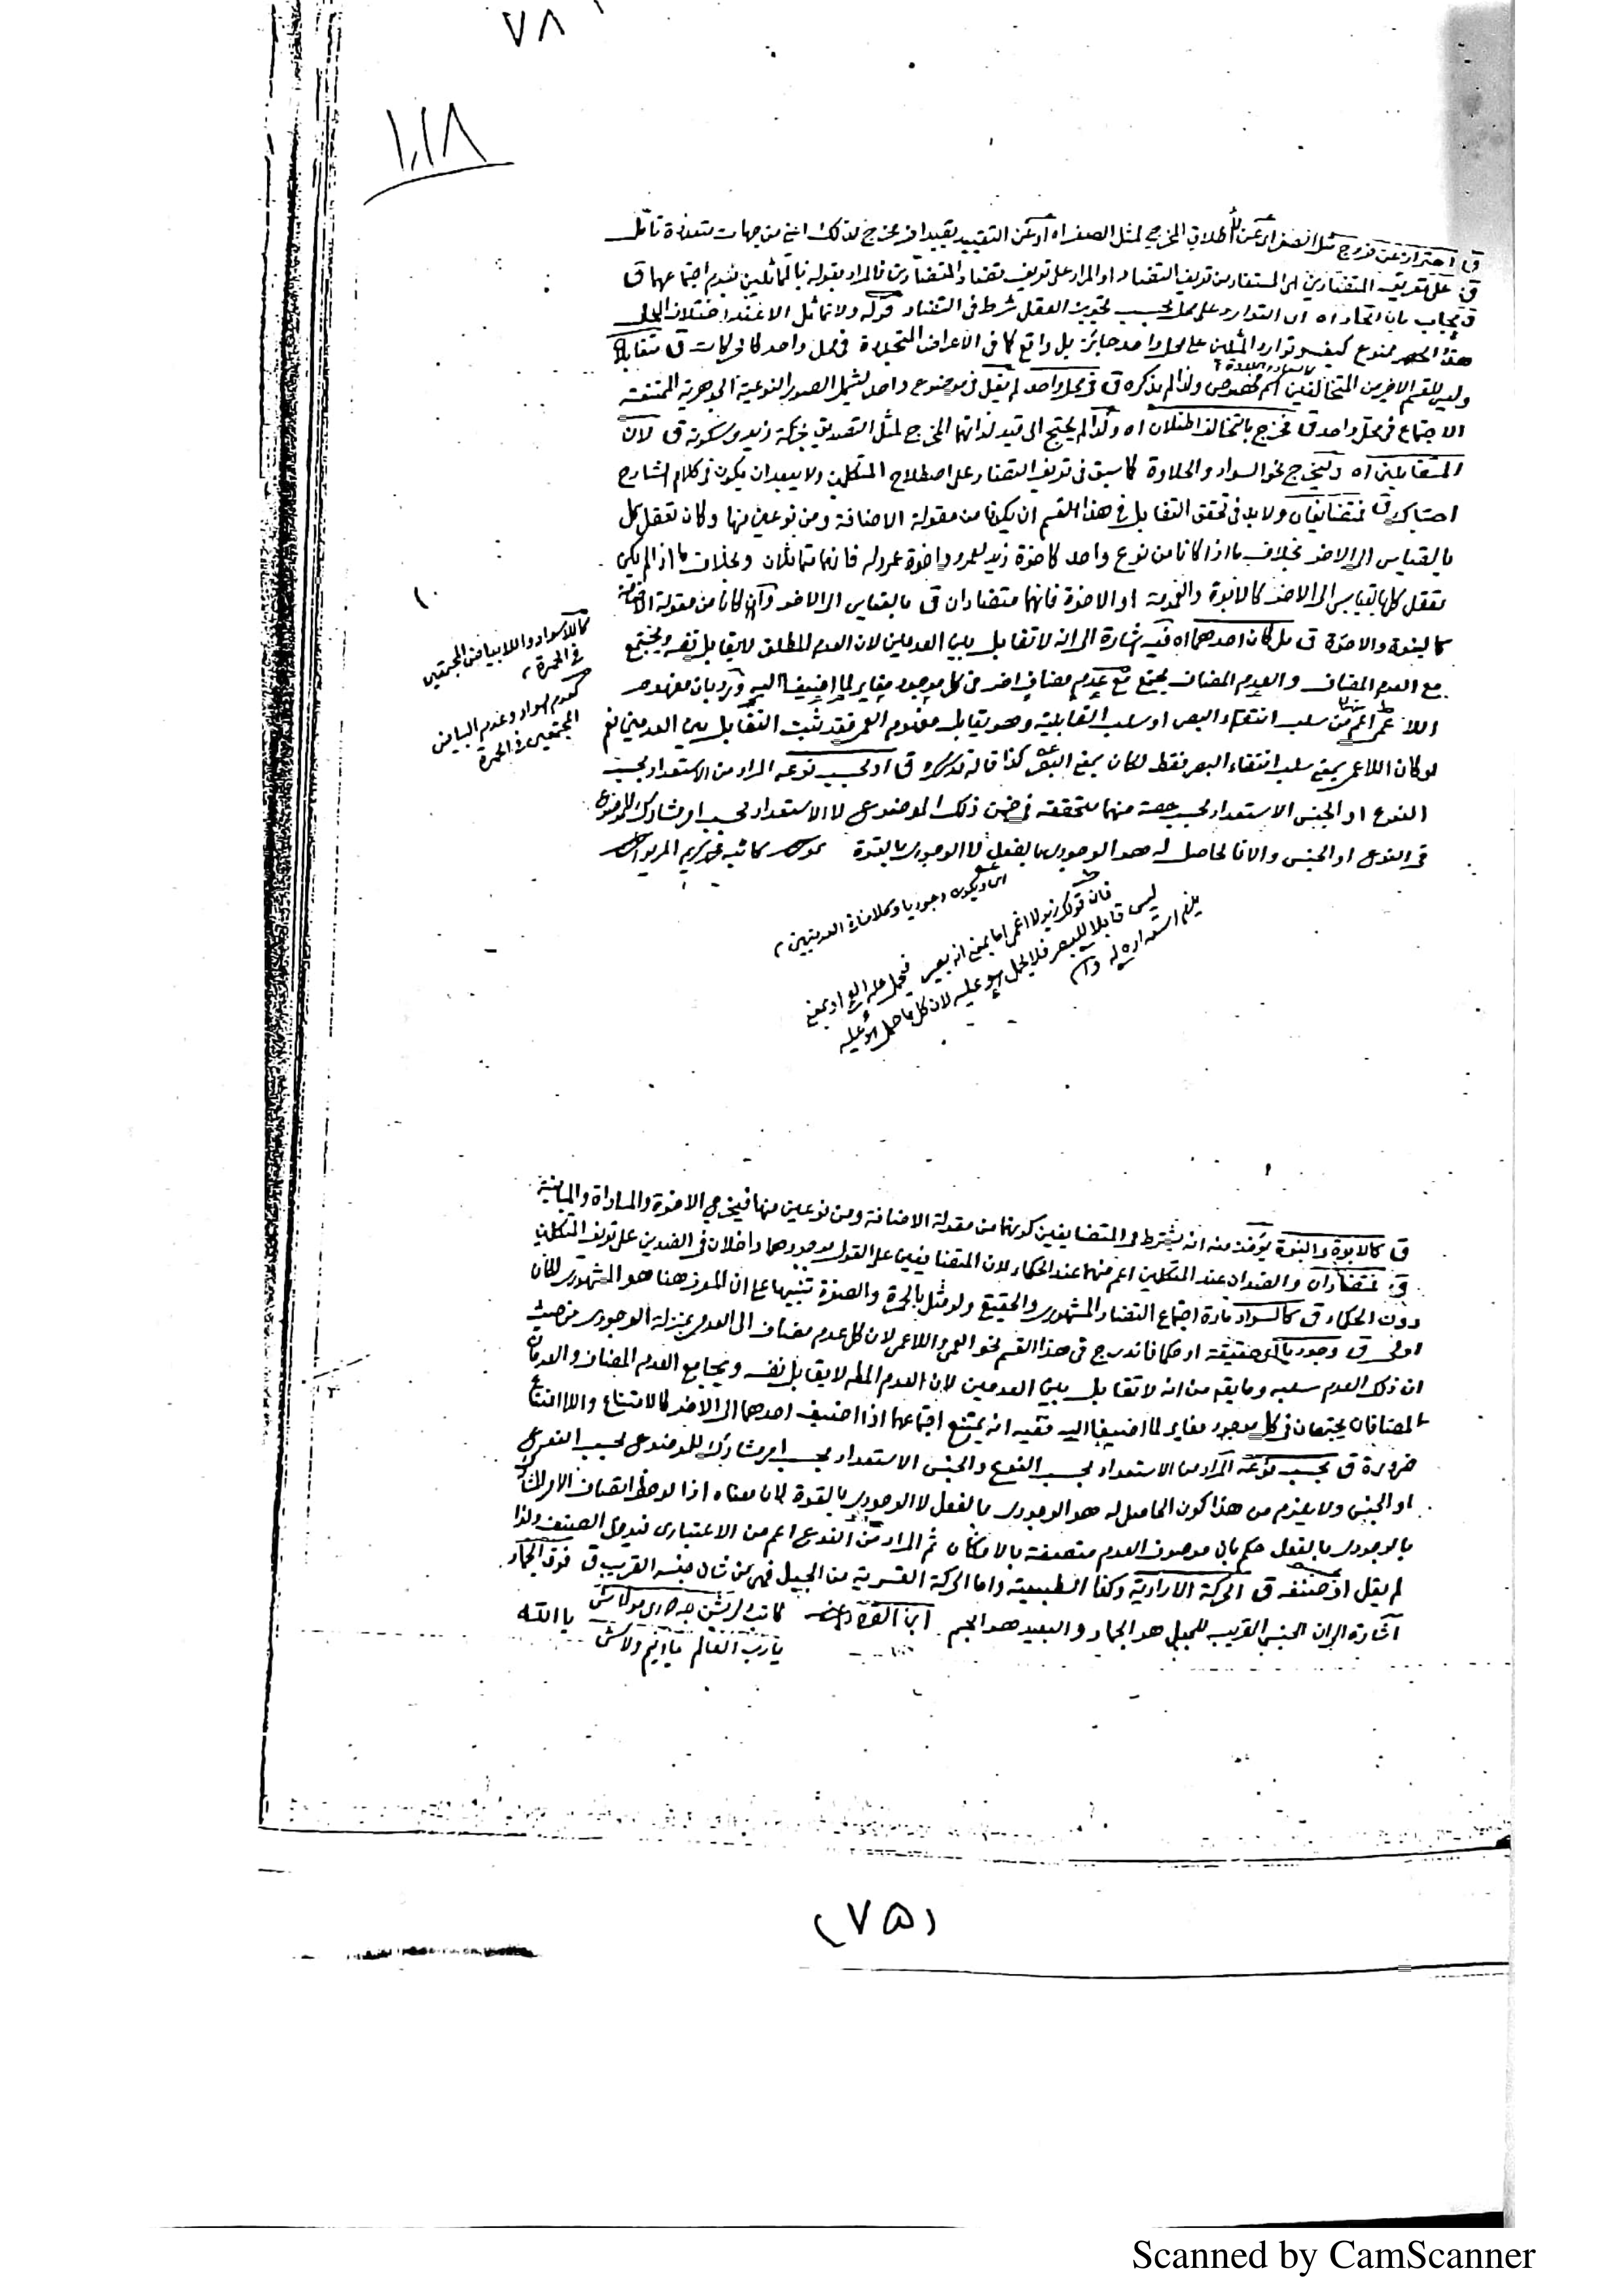 ٧٨
١٠١٨
ق احترازا عن خروج مثل الصغر اى عن الاطلاق المخرج لمثل الصغر اه او عن التقييد بقيد اخر مخرج لذلك من جهات متعددة تأمل
ق على تعريف المتضادين اى المستفاد من تعريف التضاد او المراد على تعريف تضاد المتضادين فالمراد بقوله بالمتماثلين بعدم اجتماعهما ق
ق يجاب بان اتحاد اه اى التوارد على محل بحسب تجويز العقل شرط فى التضاد قوله ولا تماثل الا عند اختلاف المحل
هذا الحصر ممنوع كيف وتوارد المثلين على محل واحد جائز بل واقع كما فى الاعراض المتجددة فى محل واحد كالحركات ق متقابلا
وليس للقسم الاخر من المتخالفين اسم مخصوص ولذا لم يذكره ق فى محل واحد لم يقل فى موضوع واحد ليشمل الصور النوعية الجوهرية الممتنعة
الاجتماع فى محل واحد ق فخرج بالتخالف المثلان اه ولذا لم يحتج الى قيد لذاتهما المخرج لمثل التصديق بحركة زيد وسكونه ق لان
المتقابلين اه وليخرج نحو السواد والحلاوة كما سبق فى تعريف التضاد على اصطلاح المتكلمين ولا يبعد ان يكون فى كلام الشارح
احتباك ق فمتضايفان ولا بد فى تحقق التقابل فى هذا القسم ان يكونا من مقولة الاضافة ومن نوعين منها وكان تعقل كل
بالقياس الى الاخر بخلاف ما اذا كانا من نوع واحد كاخوة زيد لعمرو واخوة عمرو له فانهما متماثلان وبخلاف ما اذا لم يكن
تعقل كل بالقياس الى الاخر كالابوة والفوقية او الاخوة فانهما متضادان ق بالقياس الى الاخر وان كانا من مقولة الاضافة
كالبنوة والاخوة ق بل كان احدهما اه فيه اشارة الى انه لا تقابل بين العدمين لان العدم المطلق لا يقابل نفسه ويجتمع
مع العدم المضاف والعدم المضاف يجتمع مع عدم مضاف اخر فى كل موجود مغاير لما اضيفا اليه ورد بان مفهوم
اللاعمى اعم من سلب انتفاء البصر او سلب القابلية وهو يقابل مفهوم العمى فقد ثبت التقابل بين العدمين نعم
لو كان اللاعمى بمعنى سلب انتفاء البصر فقط لكان بمعنى البصر كذا قاله ق او بحسب نوعه المراد من الاستعداد بحسب
النوع او الجنس الاستعداد بحسب حصة منهما متحققة فى ضمن ذلك الموضوع لا الاستعداد بحسب امر مشارك للموضوع
فى النوع او الجنس والا فالحاصل له هو الوجودى بالفعل لا الوجودى بالقوة كاتبه
كاللاسواد واللابياض المجتمعين
فى الحمرة
كعدم السواد وعدم البياض
المجتمعين فى الحمرة
اى ما ويكون وجوديا وكلامنا فى العدميين
فان قولك زيد لا اعمى اما بمعنى انه بصير فيحمل عليه البصر او بمعنى
ليس قابلا للبصر فلا يحمل هو عليه لان كل ما حمل هو عليه
يلزم استعداده له
ق كالابوة والبنوة يؤخذ منه انه يشترط فى المتضايفين كونهما من مقولة الاضافة ومن نوعين منها فيخرج الاخوة والمساواة والمباينة
ق فمتضادان والضدان عند المتكلمين اعم منهما عند الحكماء لان المتضايفين على القول بوجودهما داخلان فى الضدين على تعريف المتكلمين
دون الحكماء ق كالسواد مادة اجتماع التضاد المشهورى والحقيقى ولو مثل بالحمرة والصفرة تنبيها على ان المراد هنا هو المشهورى لكان
اولى ق وجوديا اى حقيقة او حكما فاندرج فى هذا القسم نحو العمى واللاعمى لان كل عدم مضاف الى العدم بمنزلة الوجودى من حيث
ان ذلك العدم سلبه وما يقع من انه لا تقابل بين العدمين لان العدم المط لا يقابل نفسه ويجامع العدم المضاف والعدمان
المضافان يجتمعان فى كل موجود مغاير لما اضيفا اليه ففيه انه يمتنع اجتماعهما اذا اضيف احدهما الى الاخر كالامتناع واللاامتناع
ضرورة ق بحسب نوعه المراد من الاستعداد بحسب النوع والجنس الاستعداد بحسب امر مشارك للموضوع بحسب النوع
او الجنس ولا يلزم من هذا كون الحاصل له هو الوجودى بالفعل لا الوجودى بالقوة لان معناه اذا لوحظ اتصاف الامر المشارك
بالوجودى بالفعل حكم بان موصوف العدم متصفة بالامكان ثم المراد من النوع اعم من الاعتبارى فيدخل الصنف ولذا
لم يقل او صنفه ق الحركة الارادية وكذا الطبيعية واما الحركة القسرية من الجبل فهى من شان جنسه القريب ق فوق الجماد
اشارة الى ان الجنس القريب للجبل هو الجماد والبعيد هو الجسم
يا رب العالم يا الله
(٧٥)
Scanned by CamScanner